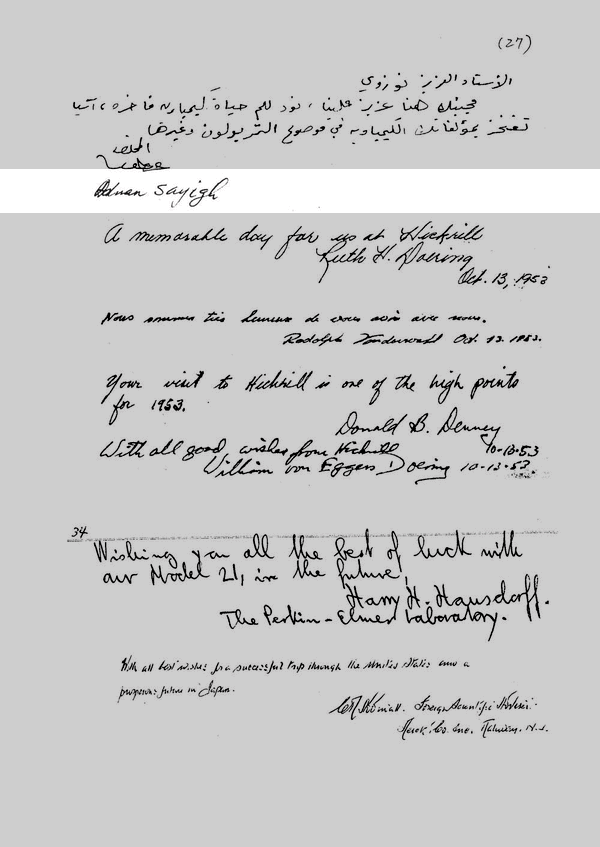 (27)
الأستاذ العزيز نوزوي
مجيئك هنا عزيز علينا ، نود لكم حياة كيمياوية فاخرة ، آسيا
تفتخر بمؤلفاتك الكيمياوية في موضوع التروبولون وغيرها
المخلص
Adnan Sayigh
A memorable day for us at Hickrill
Ruth H. Doering
Oct. 13, 1953
Nous sommes très heureux de vous avoir avec nous.
Rodolph Vonderwahl Oct. 13. 1953.
Your visit to Hickrill is one of the high points
for 1953.
Donald B. Denney
10-13-53
With all good wishes from Hickrill
William von Eggers Doering 10-13-53
34
Wishing you all the best of luck with
our Model 21, in the future!
Harry H. Hausdorff.
The Perkin-Elmer Laboratory.
With all best wishes for a successful trip through the United States and a
prosperous future in Japan.
Foreign Scientific
Merck & Co. Inc. Rahway, N.J.